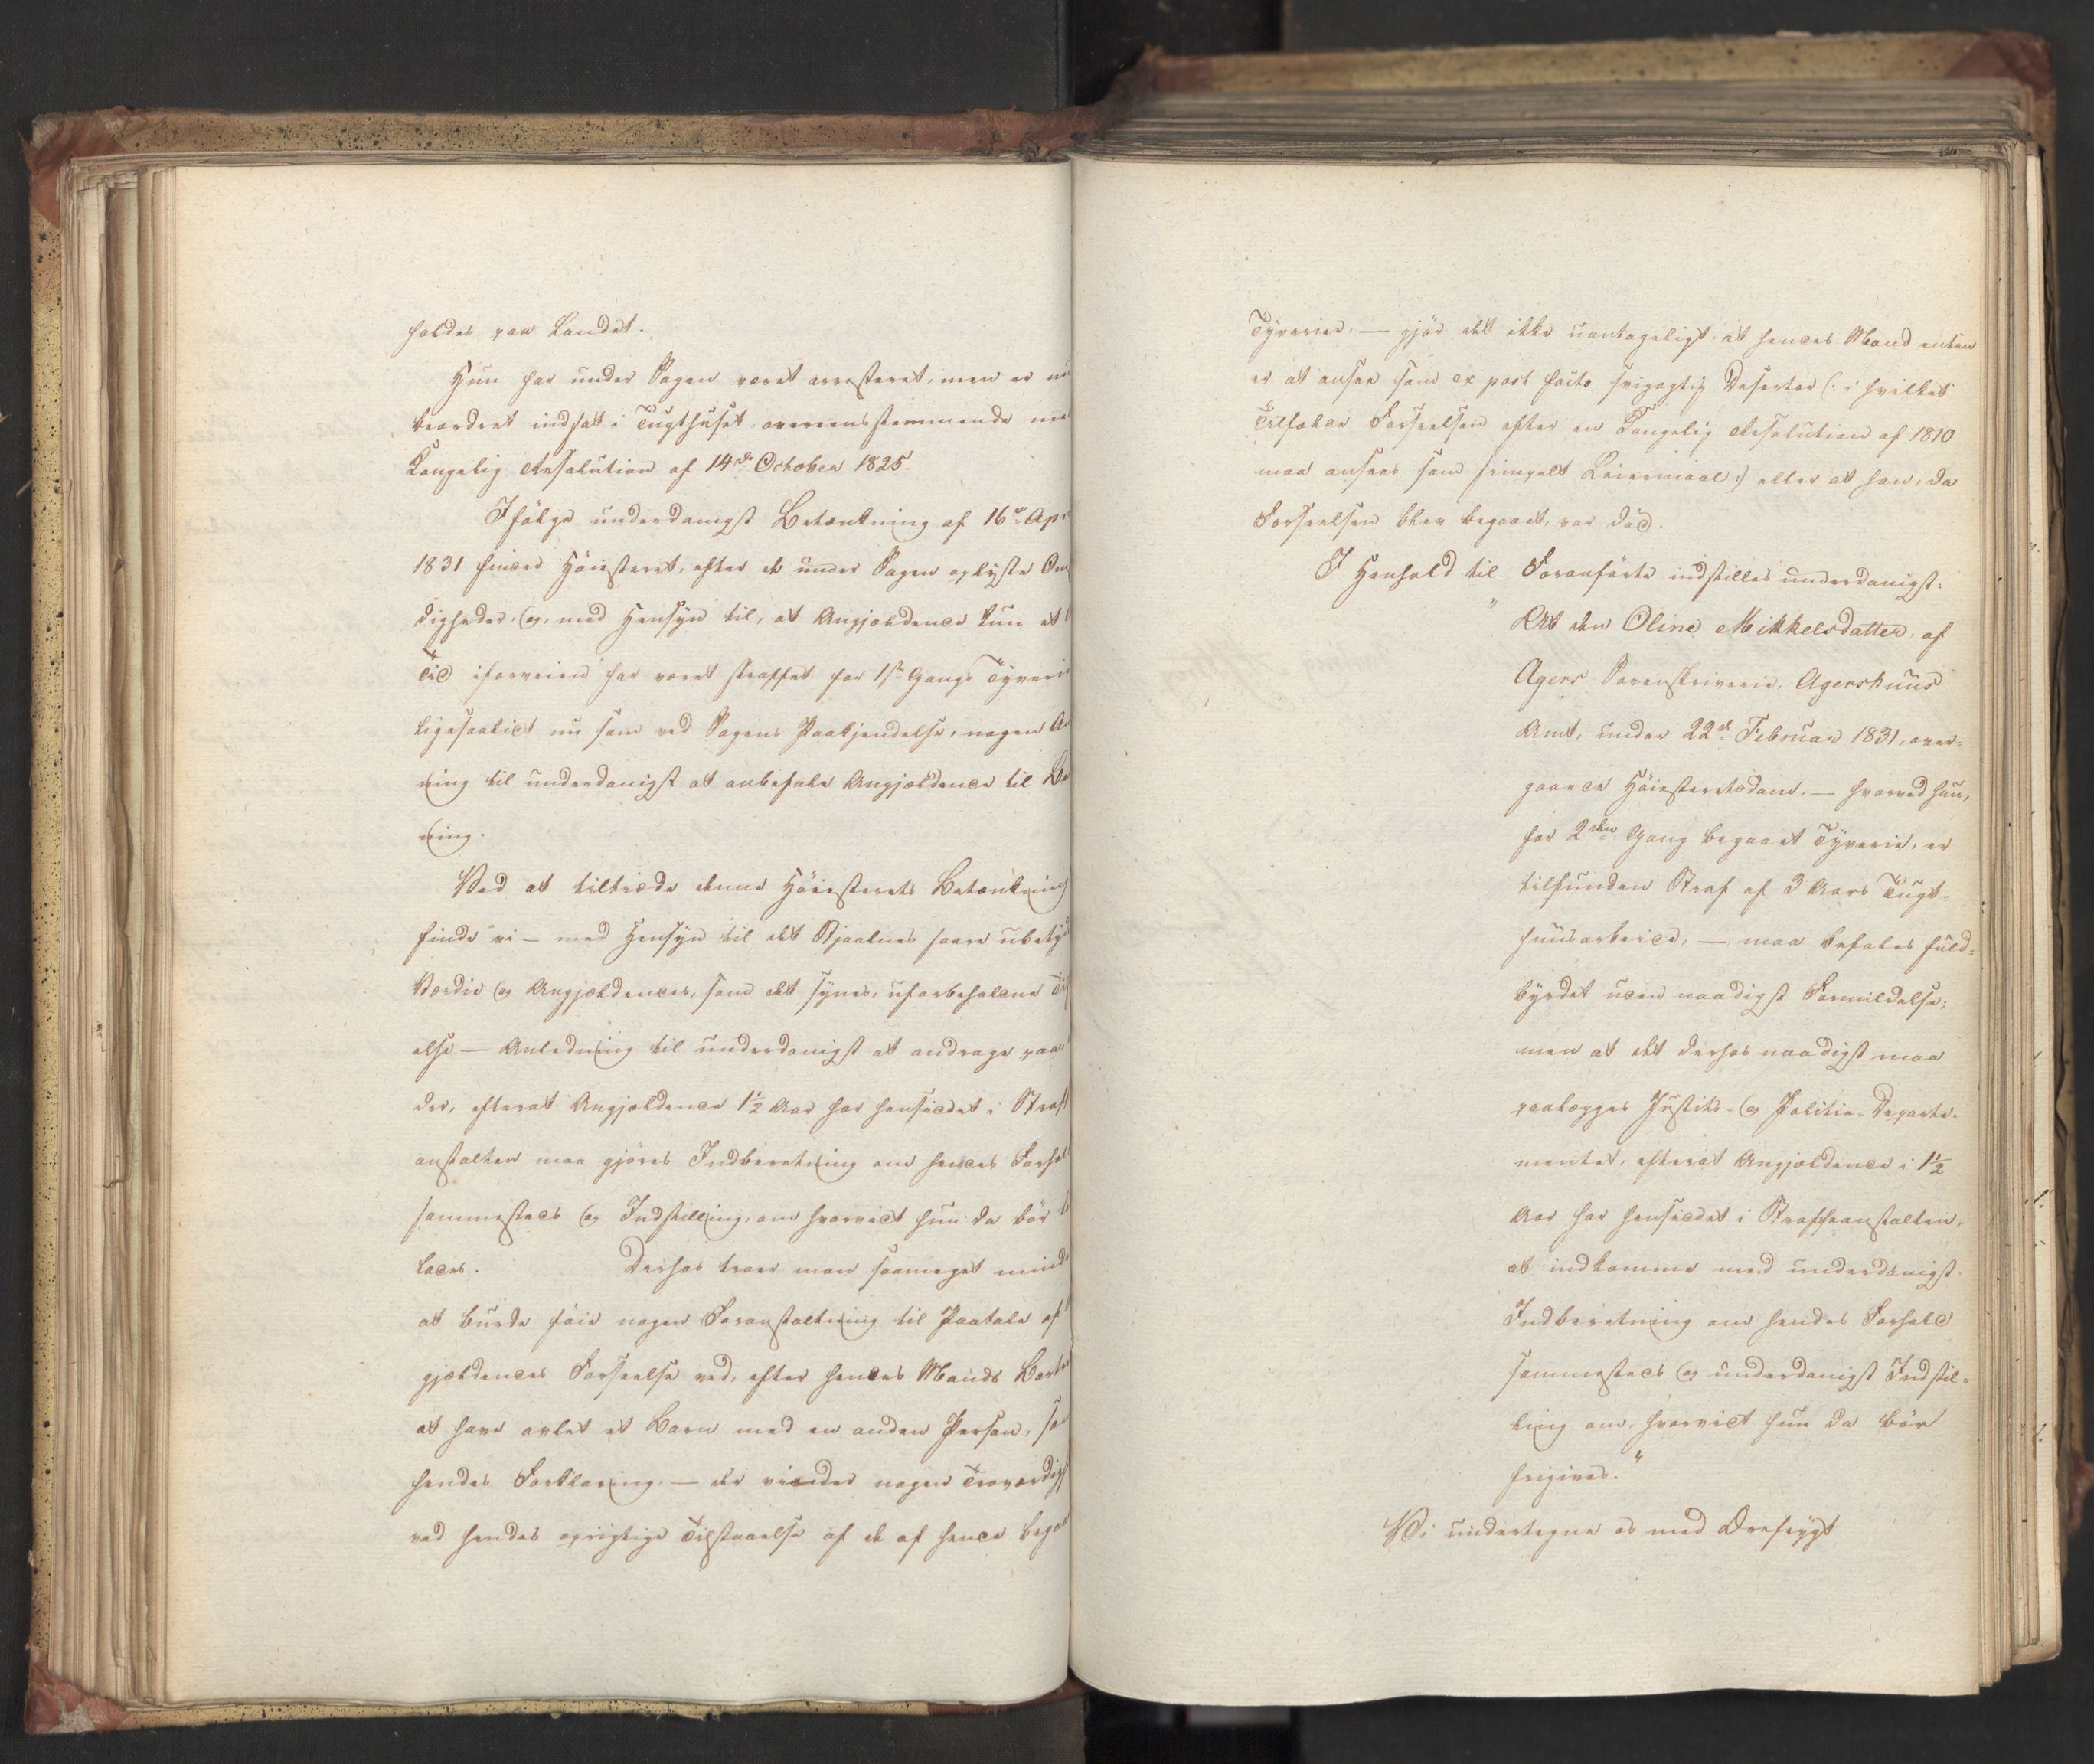 holdes paa Landet.
Hun har under Sagen været arresteret, men er nu
beordret indsat i Tugthuset overeensstemmende med
Kongelig Resolution af 14de October 1825.
Ifölge underdanigst Betænkning af 16de Apr
1831 finder Höiesteret, efter de under Sagen oplyste Om
digheder, og, med Hensyn til, at Angjældende kun et
Tid iforveien har været straffet for 1ste Gangs Tyveri
ligesaalidt nu som ved Sagens Paakjendelse, nogen An
ning til underdanigst at anbefale Angjældende til Be
ning.
Ved at tiltræde denne Höiesterets Betænkning
finde vi – med Hensyn til det Stjaalnes saare ubety
Værdie og Angjældendes, som det synes, uforbeholdne Til
else – Anledning til underdanigst at andrage paa,
der, efterat Angjældende 1½ Aar har hensiddet i Straf
anstalten maa gjöres Indberetning om hendes Forhol
sammesteds og Indstilling, om hvorvidt hun da bör
lades. Derhos troer man saameget mind
at burde föie nogen Foranstaltning til Paatale af
gjældendes Forseelse ved, efter hendes Mands Bort
at have avlet et Barn med en anden Person, so
hendes Forklaring, – der vinder nogen Troværdigh
ved hendes oprigtige Tilstaaelse af de af hende bega
Tyverier, – gjör det ikke uantageligt, at hendes Mand enten
er at ansee som ex post facto svigagtig Desertör (: i hvilket
Tilfælde Forseelsen efter en Kongelig Resolution af 1810
maa ansees som simpelt Leiermaal :) eller at han, da
Forseelsen blev begaaet, var död.
I Henhold til Foranförte indstilles underdanigst:
"At den Oline Mikkelsdatter, af
Agers Sorenskriverie, Agershuus
Amt, under 22de Februar 1831, over-
gaaede Höiesteretsdom, – hvorved hun,
for 2den Gang begaaet Tyverie, er
tilfunden Straf af 3 Aars Tugt-
huusarbeide, – maa befales fuld-
byrdet uden naadigst Formildelse;
men at det derhos naadigst maa
paalægges Justits- og Politie-Departe-
mentet, efterat Angjældende i 1½
Aar har hensiddet i Straffeanstalten,
at indkomme med underdanigst
Indberetning om hendes Forhold
sammesteds og underdanigst Indstil-
ling om, hvorvidt hun da bör
frigives."
Vi undertegne os med Ærefrygt